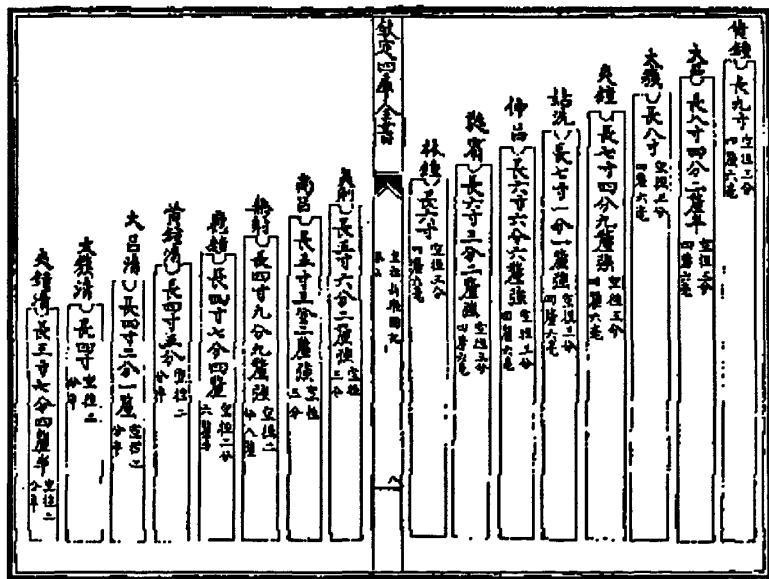 黄鐘
長九寸
空徑三分
四釐六毫
大呂
長八寸四分二釐半
空徑三分
四釐六毫
太簇
長八寸
空徑三分
四釐六毫
夾鐘
長七寸四分九釐強
空徑三分
四釐六毫
姑洗
長七寸一分一釐強
空徑三分
四釐六毫
仲呂
長六寸六分六釐強
空徑三分
四釐六毫
蕤賓
長六寸三分二釐強
空徑三分
四釐六毫
林鐘
長六寸
空徑三分
四釐六毫
欽定四庫全書
八
夷則
長五寸六分二釐強
空徑
三分
南呂
長五寸三分三釐強
空徑
三分
無射
長四寸九分九釐強
空徑二
分八釐
應鐘
長四寸七分四釐
空徑二分
黄鐘清
長四寸五分
空徑二
分半
大呂清
長四寸二分一釐
空徑二
分半
太簇清
長四寸
空徑二
分半
夾鐘清
長三寸七分四釐半
空徑二
分半